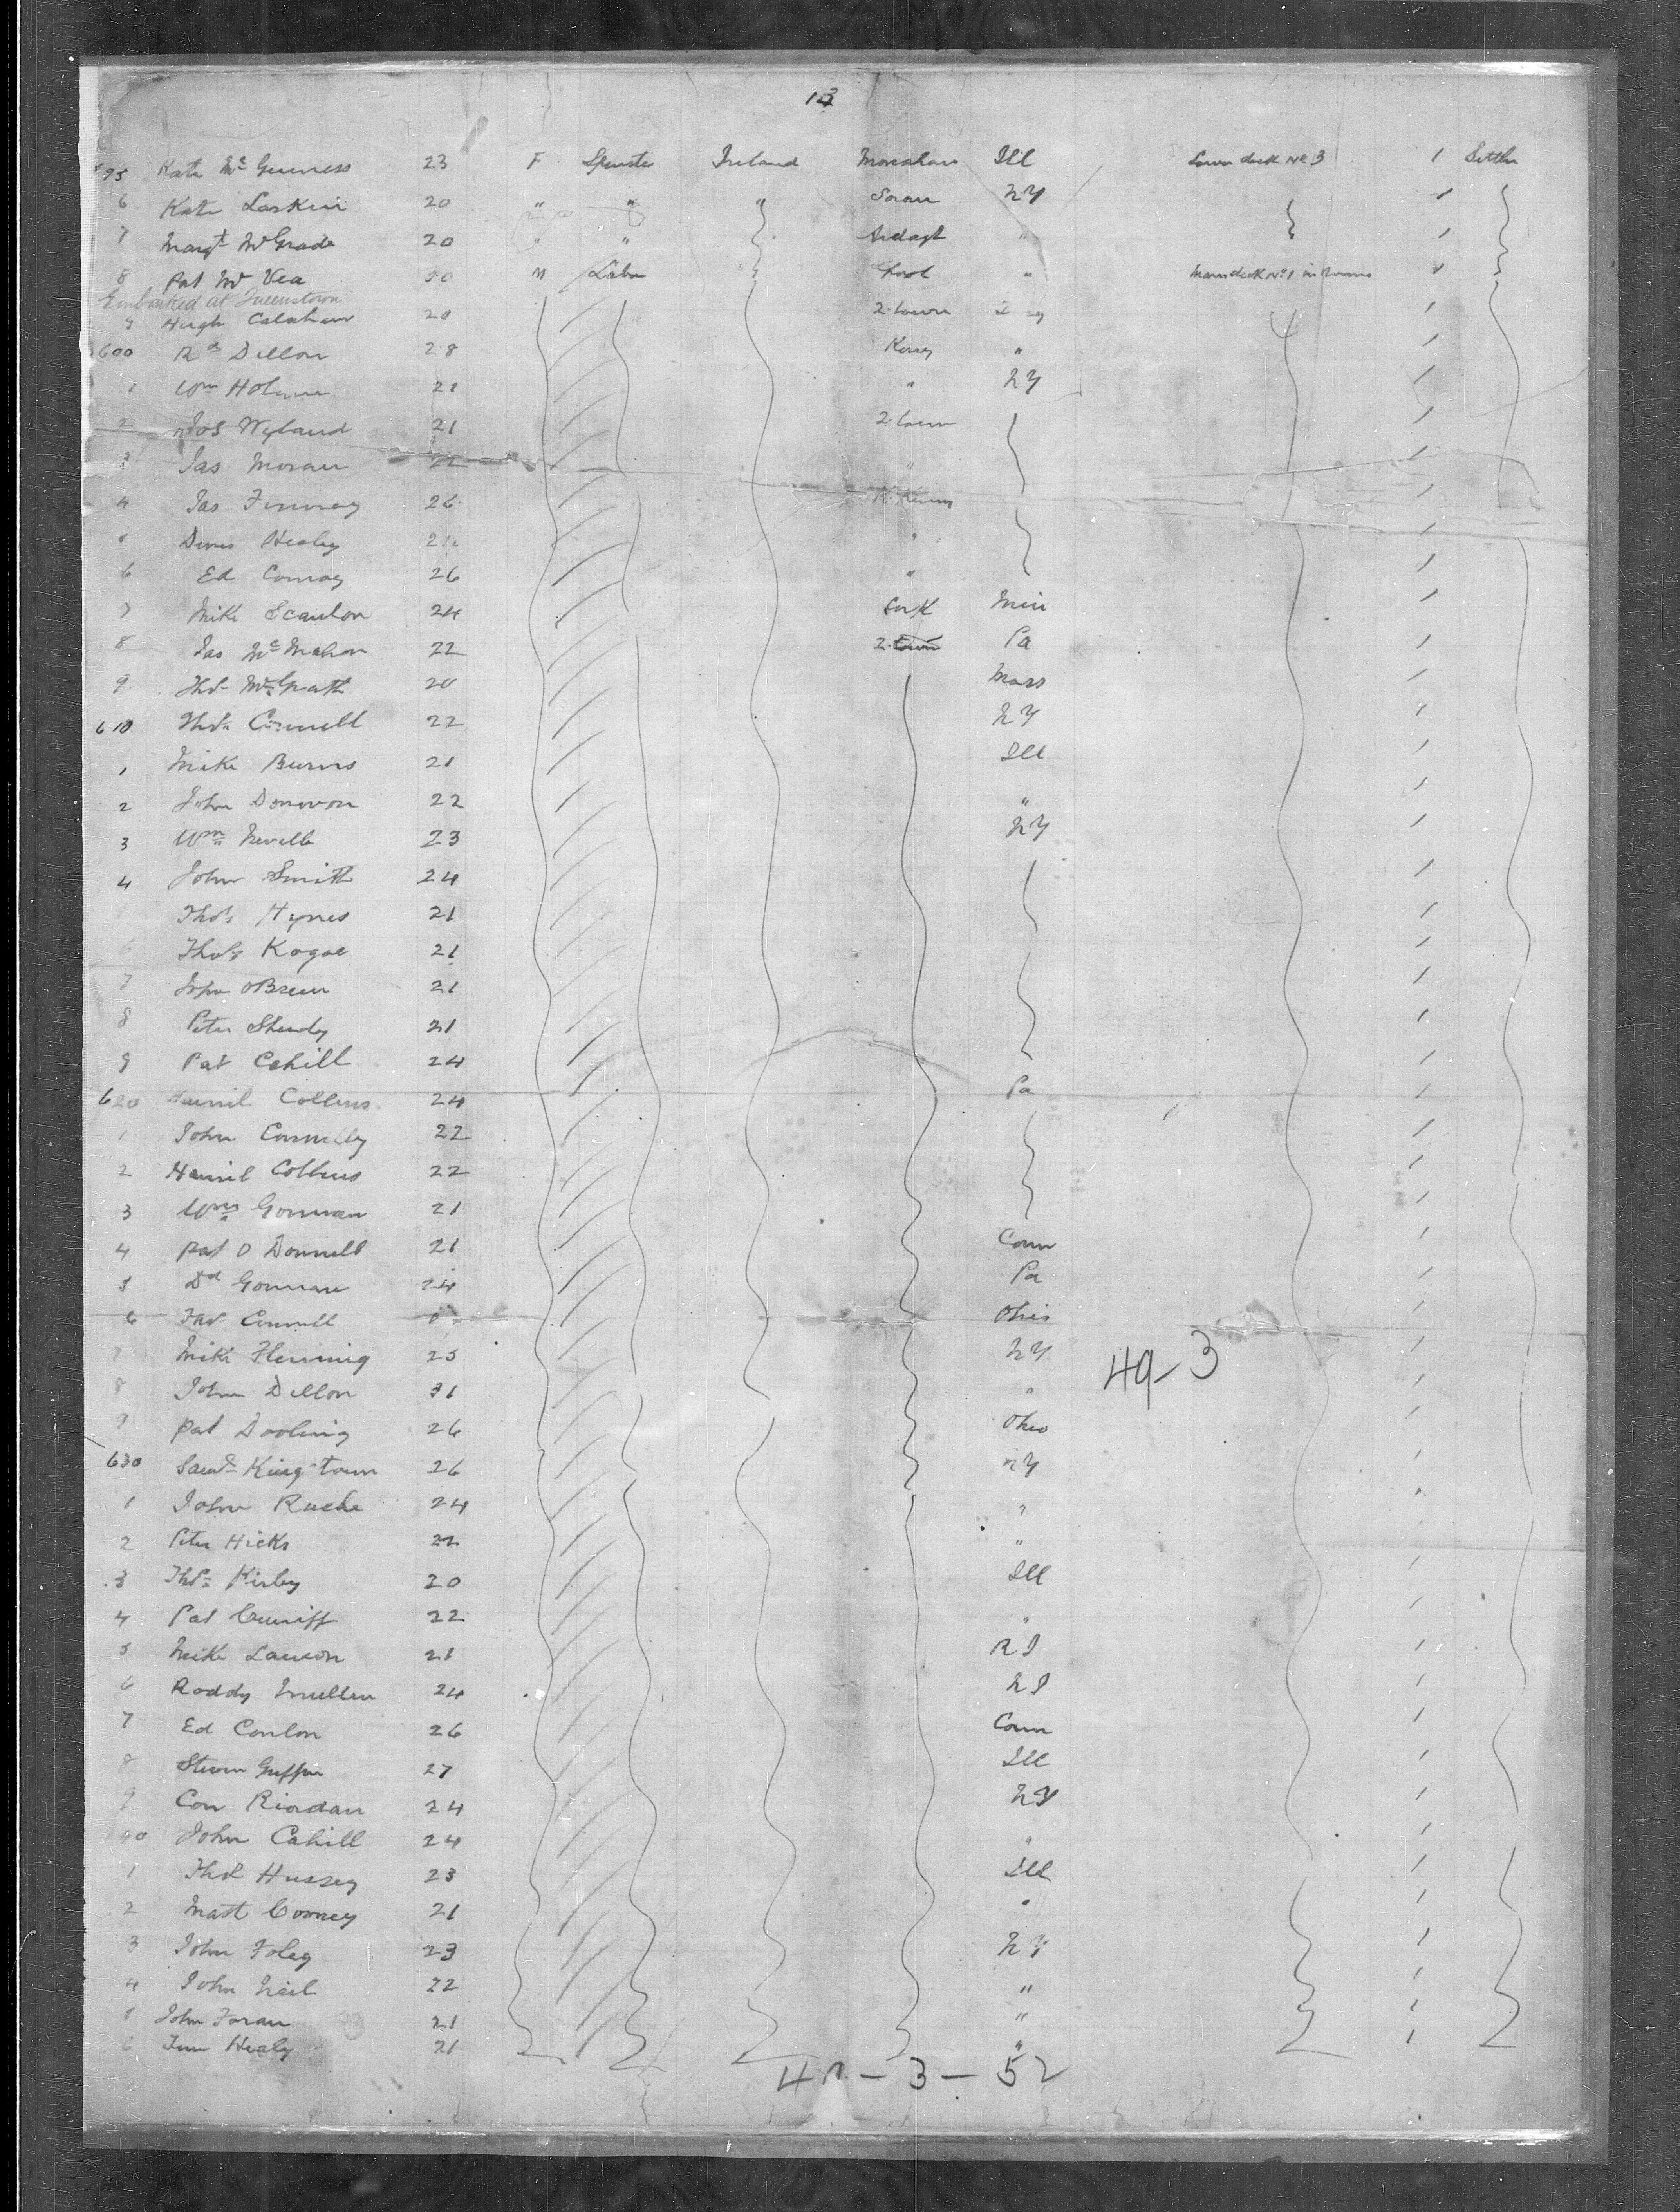 13
595 Kate Mc Guiness 23 F Spinster Ireland Monaghan Ill Lower deck No 3 1 Settler
6 Kate Larkin 20 " " " NY 1
7 Margt McGrade 20 " " Ardagh " 1
8 Pat Mc Vea M Labr " Main deck No 1 in rooms 1
Embarked at Queenstown
9 Hugh Calahan 20 2.town 1
600 Rd Dillon 28 Kerry " 1
1 Wm Holme 21 " NY 1
2 Jos Wyland 21 2.town 1
3 Jas Moran 22 " 1
4 Jas Finney 26 1
5 Denis Healey " 1
6 Ed Conroy 26 " 1
7 Mike Scanlon 24 Cork Min 1
8 Jas Mc Mahon 22 2.town Pa 1
9 Thos McGrath 20 Mass 1
610 Thos Connell 22 NY 1
1 Mike Burns 21 Ill 1
2 John Donovon 22 " 1
3 Wm Nevill 23 NY 1
4 John Smith 24 1
Thos Hynes 21 1
6 Thos Kogoe 21 1
7 John OBrien 21 1
8 Peter Sheedy 21 1
9 Pat Cahill 24 1
620 Collins 24 Pa 1
1 John Connolly 22 1
2 Collins 22 1
3 Wm Gorman 21 1
4 Pat O Donnell 21 Conn 1
5 Dd Gorman 24 Pa 1
6 Thos Connell Ohio 1
7 Mike Fleming 25 NY 1
49-3
8 John Dillon 31 " 1
9 Pat Dooling 26 Ohio 1
630 Saml Kingstown 26 NY 1
1 John Ruche 24 "
2 Peter Hicks 22 "
3 Thos Kirby 20 Ill 1
4 Pat Cunniff 22 " 1
5 Mike Lawson 21 R I 1
6 Roddy Mullen 24 1
7 Ed Conlon 26 Conn 1
8 Steven Griffin 27 Ill 1
9 Con Riordan 24 NY 1
40 John Cahill 24 " 1
1 Thos Hussey 23 Ill 1
2 Matt Cooney 21 " 1
3 John Foley 23 NY 1
4 John Neil 22 " 1
5 John Foran 21 " 1
6 Healy 21 " 1
- 3 - 52